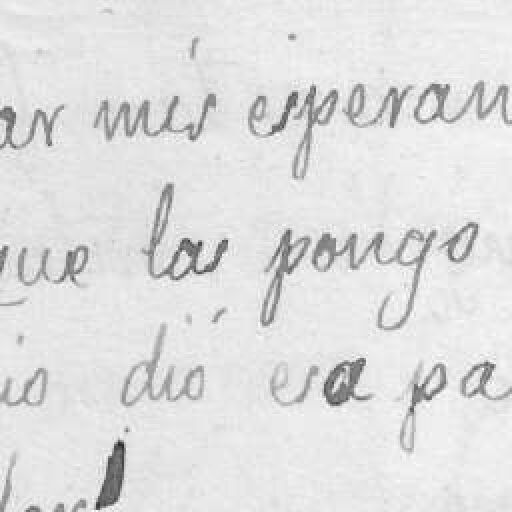 ar mis esperan
que las pongo
io dió esa pa